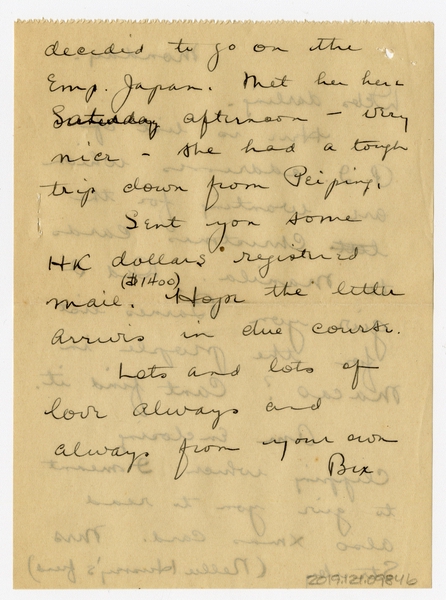 decided to go on the
Emp. Japan. Met her here
Saturday afternoon - very
nice - she had a tough
trip down from Peiping.
Sent you some
HK dollars registered
($1400)
mail. Hope the letter
arrives in due course.
Lots and lots of
love always and
always from your own
Bix
2019.121.09846